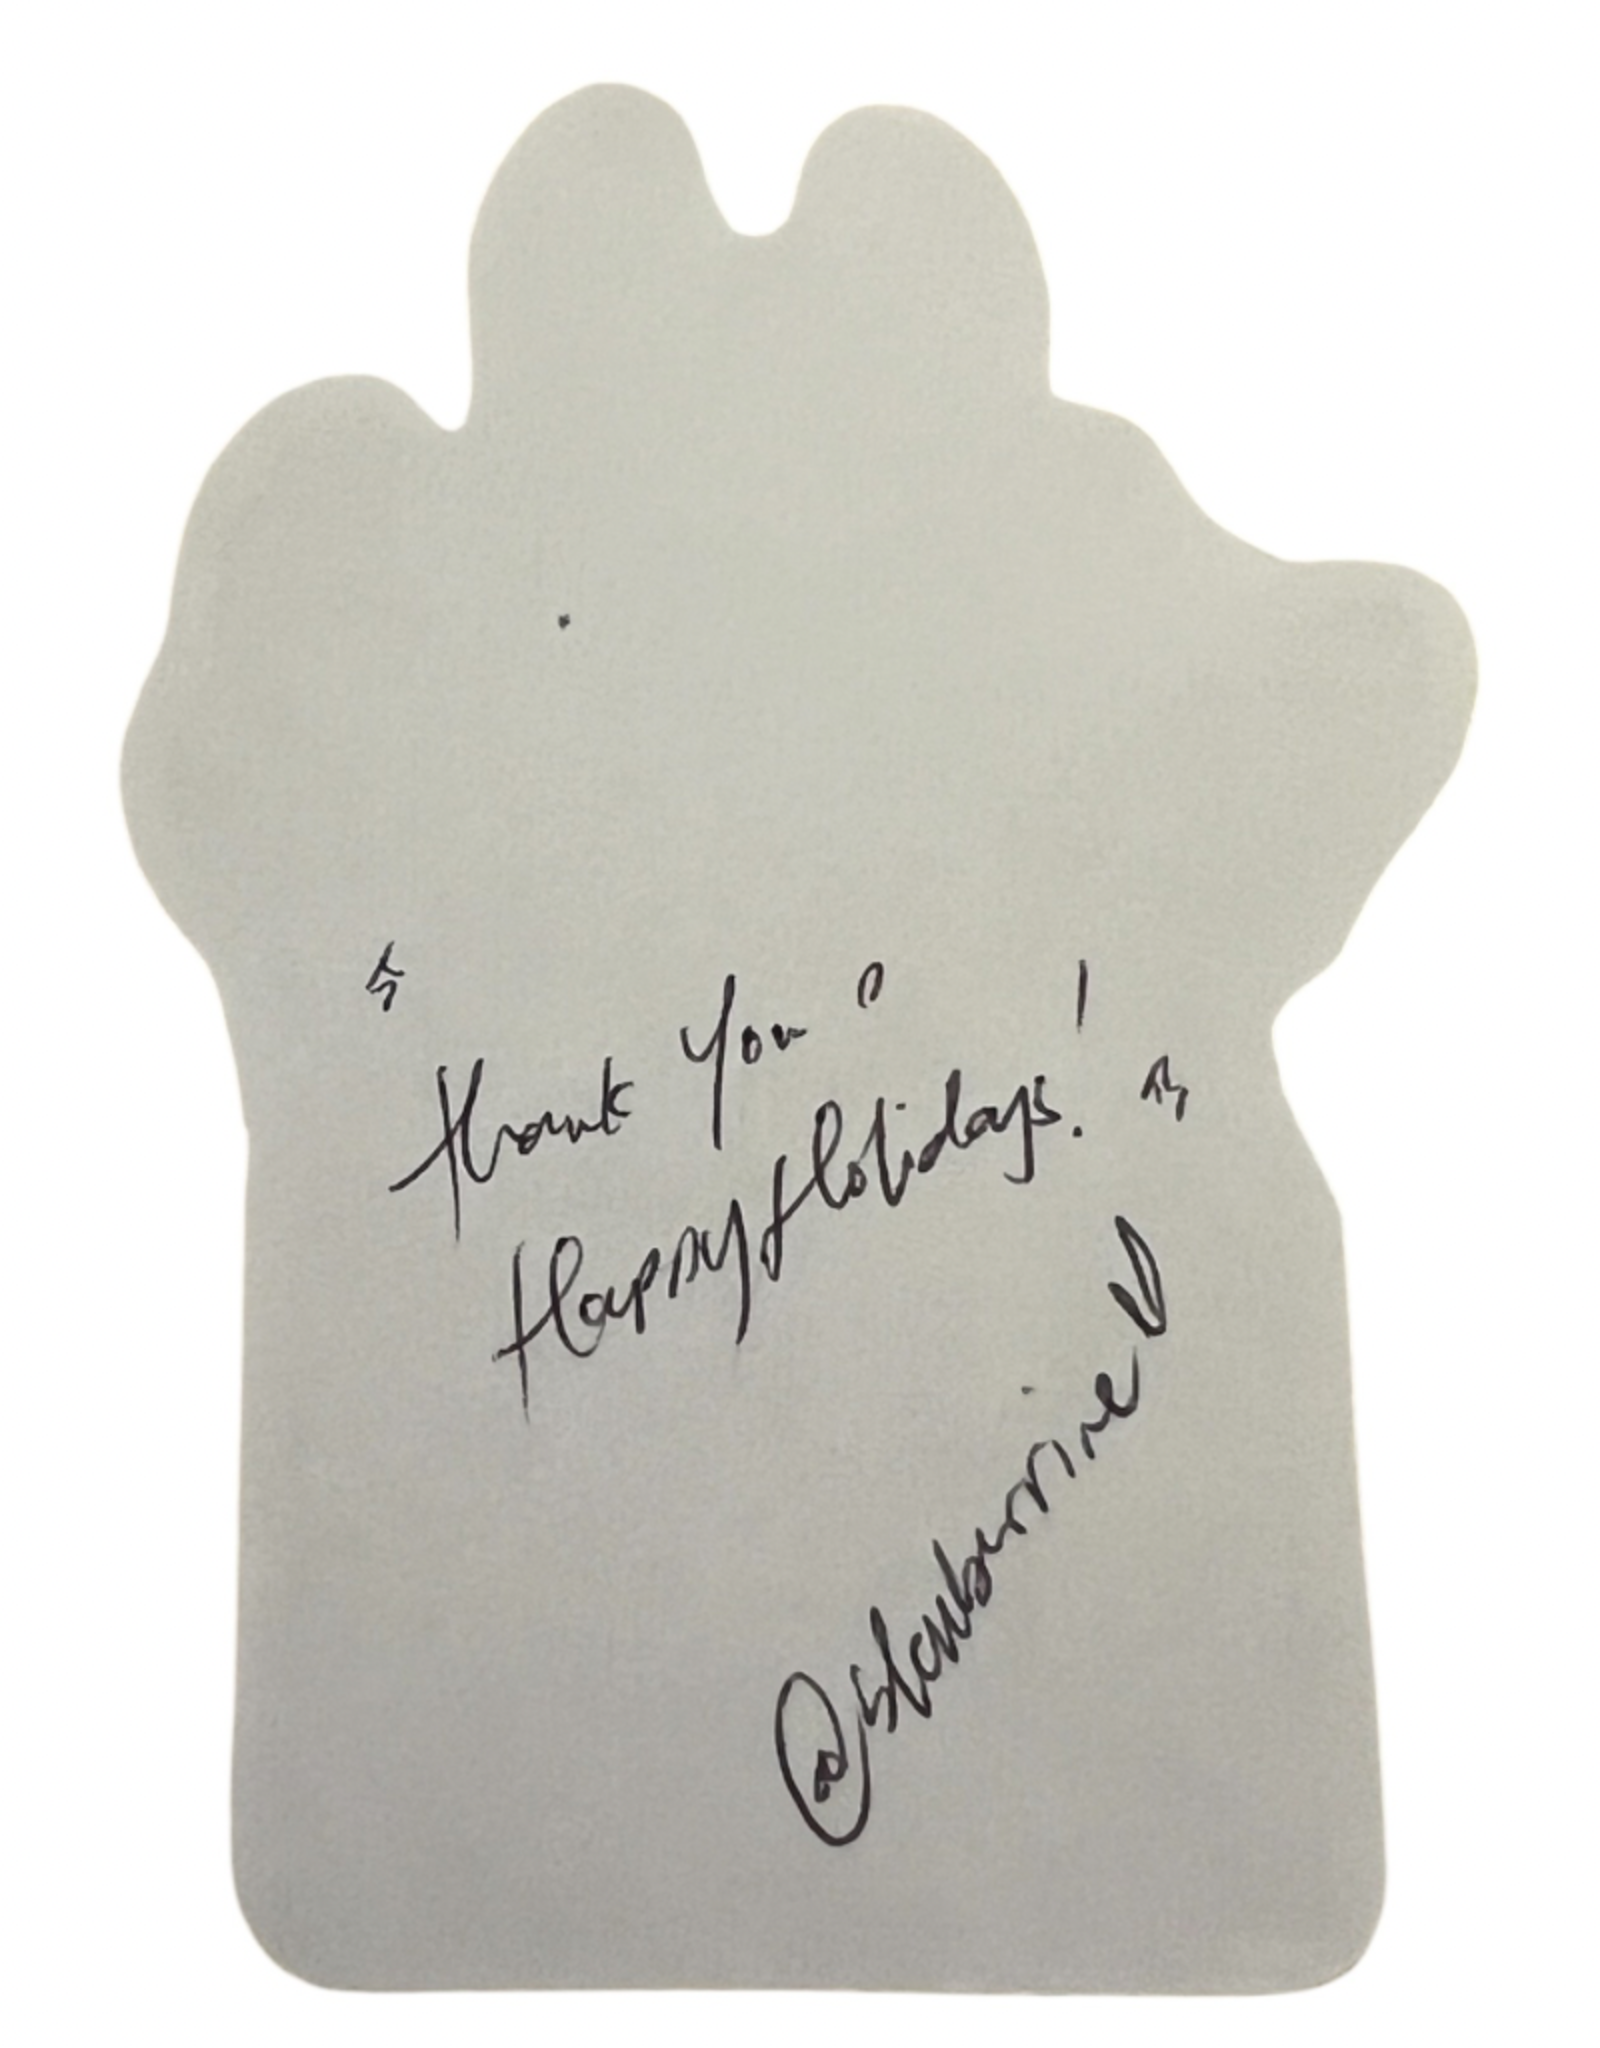 Thank You
Happy Holidays!